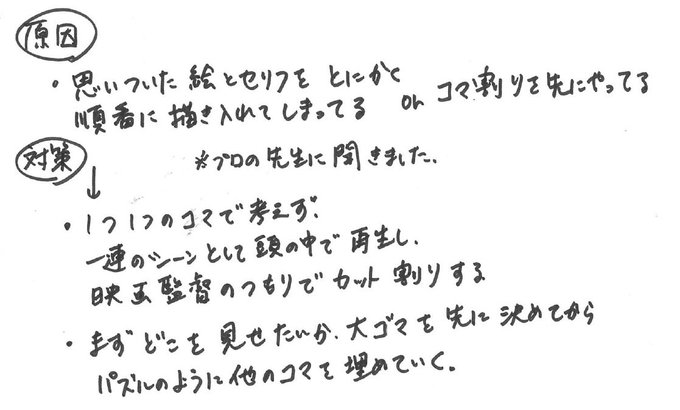 原因
・思いついた絵とセリフをとにかく
順番に描き入れてしまってる or コマ割りを先にやってる
対策
※プロの先生に聞きました。
↓
・1つ1つのコマで考えず、
一連のシーンとして頭の中で再生し、
映画監督のつもりでカット割りする
・まずどこを見せたいか、大ゴマを先に決めてから
パズルのように他のコマを埋めていく。